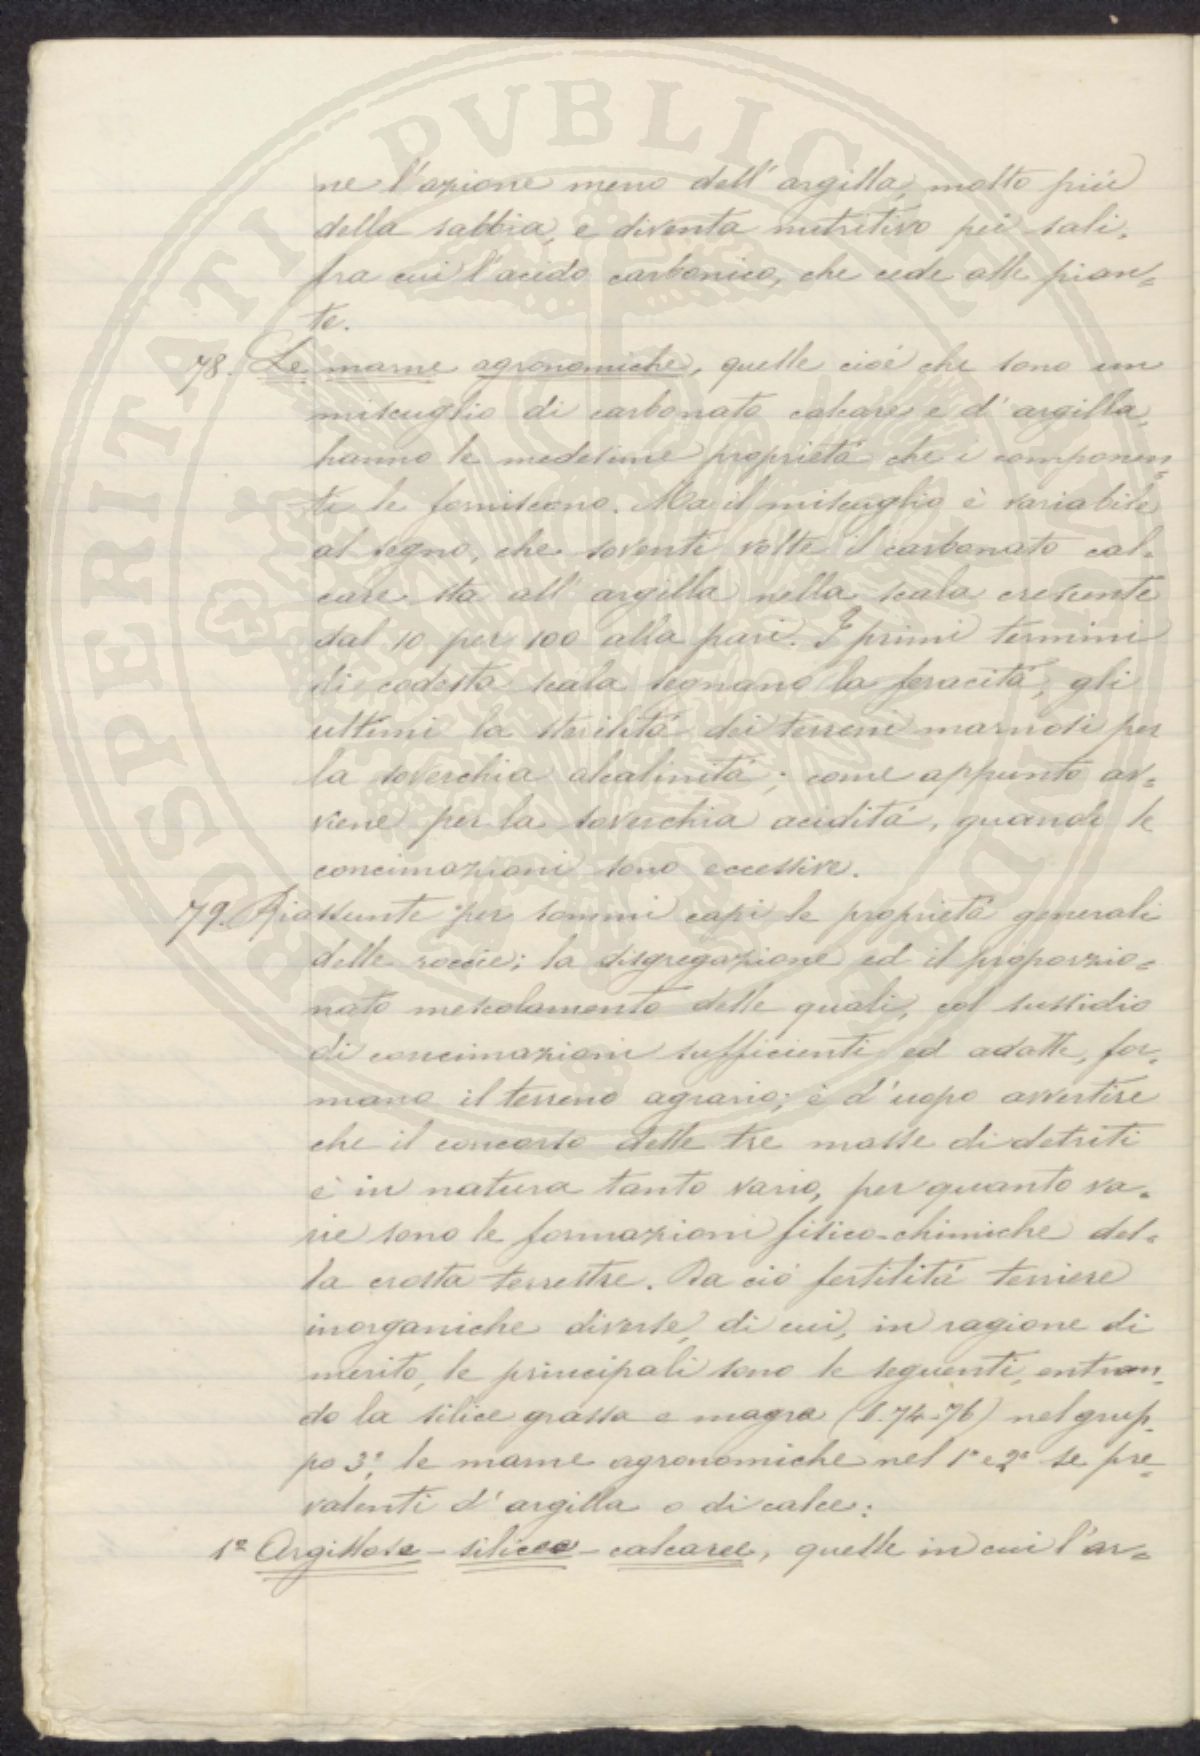 ne l'azione meno dell'argilla, molto più
della sabbia, e diventa nutritivo pei sali,
fra cui l'acido carbonico, che cede alle pian=
te.
78. Le marne agronomiche, quelle cioè che sono un
miscuglio di carbonato calcare e d'argilla,
hanno le medesime proprietà che i componen=
ti le forniscono. Ma il miscuglio è variabile
al segno, che soventi volte il carbonato cal=
care sta all'argilla nella scala crescente
dal 10 per 100 alla pari. I primi termini
di codesta scala segnano la feracità, gli
ultimi la sterilità dei terreni marnosi per
la soverchia alcalinità; come appunto av=
viene per la soverchia acidità, quando le
concimazioni sono eccessive.
79. Riassunte per sommi capi le proprietà generali
delle roccie; la disgregazione ed il proporzio=
nato mescolamento delle quali, col sussidio
di concimazioni sufficienti ed adatte, for=
mano il terreno agrario; è d'uopo avvertire
che il concorso delle tre masse di detriti
è in natura tanto vario, per quanto va=
rie sono le formazioni fisico-chimiche del=
la crosta terrestre. Da ciò fertilità terriere
inorganiche diverse, di cui, in ragione di
merito, le principali sono le seguenti, entran=
do la silice grassa e magra (§. 74-76) nel grup=
po 3°, le marne agronomiche nel 1° e 2° se pre=
valenti d'argilla o di calce:
1° Argillose - silicee - calcaree, quelle in cui l'ar=
PROSPERITATI PVBLICAE